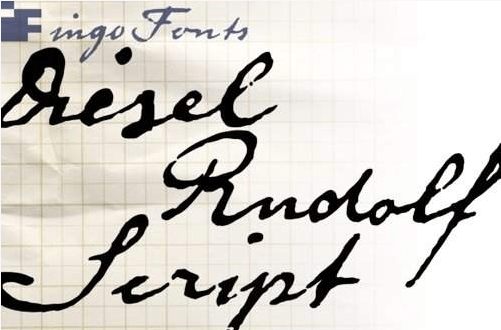 Fingo Fonts
Diesel
Rudolf
Script